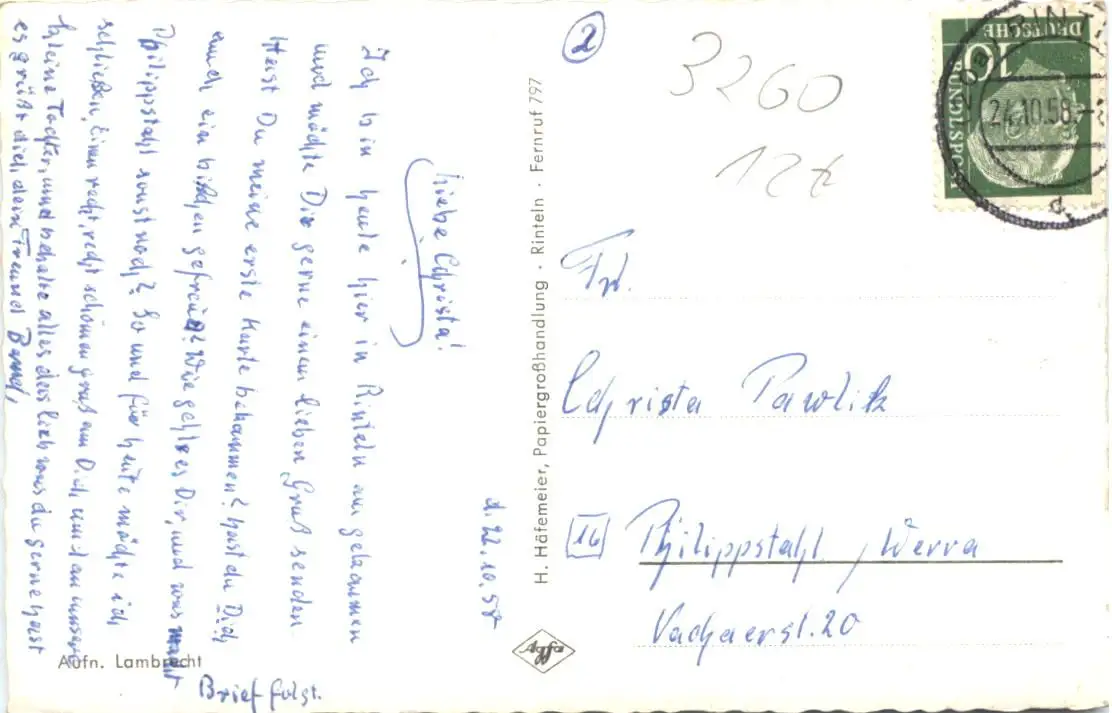 d. 22.10.58
Liebe Christa!
Ich bin heute hier in Rinteln an gekommen
und möchte Dir gerne einen lieben Gruß senden
Hast Du meine erste Karte bekommen? hast du Dich
auch ein bißchen gefreut? Wie geht es Dir, und was macht
Philippstahl sonst noch? So und für heute möchte ich
schließen, Einen recht, recht schönen gruß an Dich und an unsere
kleine Tochter, und behalte alles das lieb was du gerne hast
es grüßt dich, dein Freund Bernd,
Brief folgt.
Aufn. Lambrecht
H. Häfemeier, Papiergroßhandlung · Rinteln · Fernruf 797
2
3260
12
DEUTSCHE
BUNDESPOST
10
RINT
24.10.58
d
Frl.
Christa Pawlik
16 Philippstahl, Werra
Vachaerst. 20